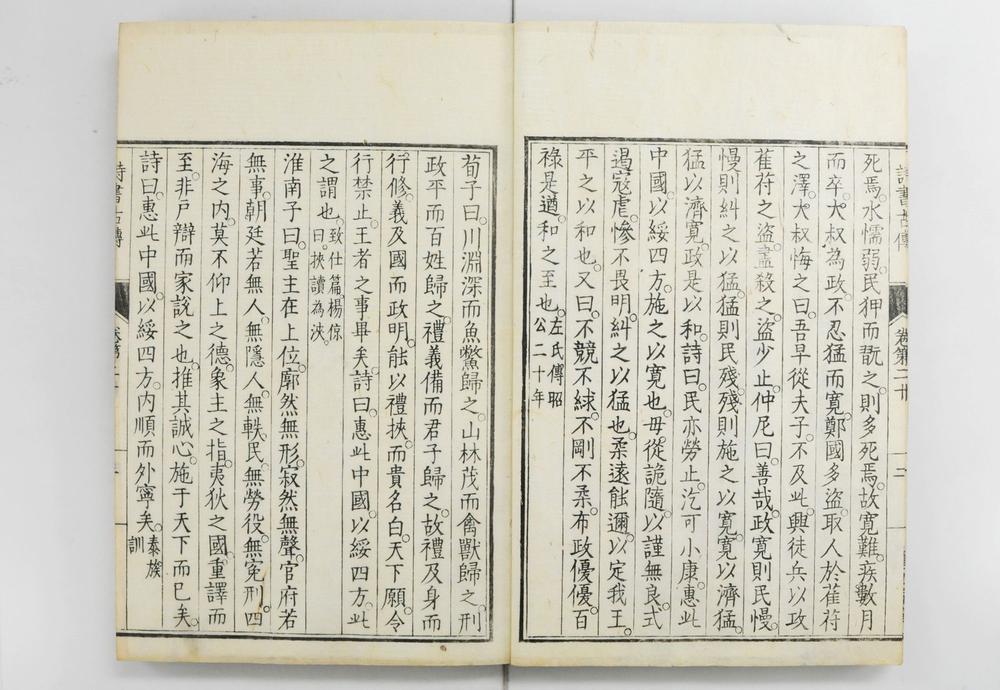 詩書古傳
卷第二十
死焉。水懦弱。民狎而翫之。則多死焉。故寬難。疾數月
而卒。大叔為政。不忍猛而寬。鄭國多盜。取人於萑苻
之澤。大叔悔之曰。吾早從夫子。不及此。興徒兵以攻
萑苻之盜。盡殺之。盜少止。仲尼曰。善哉。政寬則民慢。
慢則糾之以猛。猛則民殘。殘則施之以寬。寬以濟猛。
猛以濟寬。政是以和。詩曰。民亦勞止。汔可小康。惠此
中國。以綏四方。施之以寬也。毋從詭隨。以謹無良。式
遏寇虐。慘不畏明。糾之以猛也。柔遠能邇。以定我王。
平之以和也。又曰。不競不絿。不剛不柔。布政優優。百
祿是遒。和之至也。左氏傳昭
公二十年
荀子曰。川淵深而魚鱉歸之。山林茂而禽獸歸之。刑
政平而百姓歸之。禮義備而君子歸之。故禮及身而
行修。義及國而政明。能以禮挾。而貴名白。天下願。令
行禁止。王者之事畢矣。詩曰。惠此中國。以綏四方。此
之謂也。致仕篇。楊倞
曰。挾讀為浹。
淮南子曰。聖主在上位。廓然無形。寂然無聲。官府若
無事。朝廷若無人。無隱人。無軼民。無勞役。無冤刑。四
海之內。莫不仰上之德。象主之指。夷狄之國。重譯而
至。非戶辯而家說之也。推其誠心。施于天下而已矣。
詩曰。惠此中國。以綏四方。內順而外寧矣。泰族
訓
詩書古傳
卷第二十